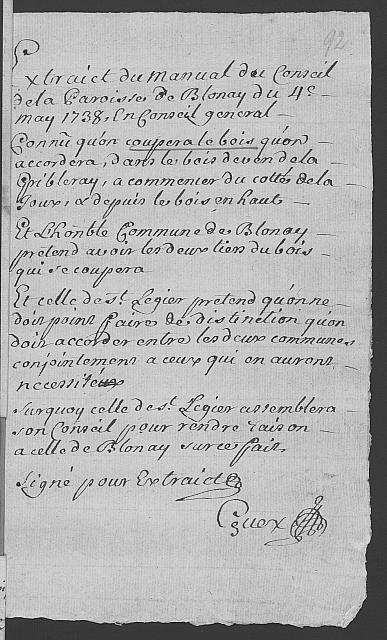 92
Extraict du Manual du Conseil
de la Paroisse de Blonay du 4e
may 1738, En Conseil general
Connû qu'on coupera le bois qu'on
accordera, dans le bois deven de la
Cribleray, a commencer du costé de la
Joux, & depuis le bois en haut
Et L'honble Commune de Blonay
pretend avoir les deux tiers du bois
qui se coupera
Et celle de St Legier pretend qu'on ne
doit point faire de distinction qu'on
doit accorder entre les deux communes
conjointement a ceux qui en auront
necessité
Surquoy celle de St Legier assemblera
son Conseil pour rendre raison
a celle de Blonay sur ce fait,
Signé pour Extraict